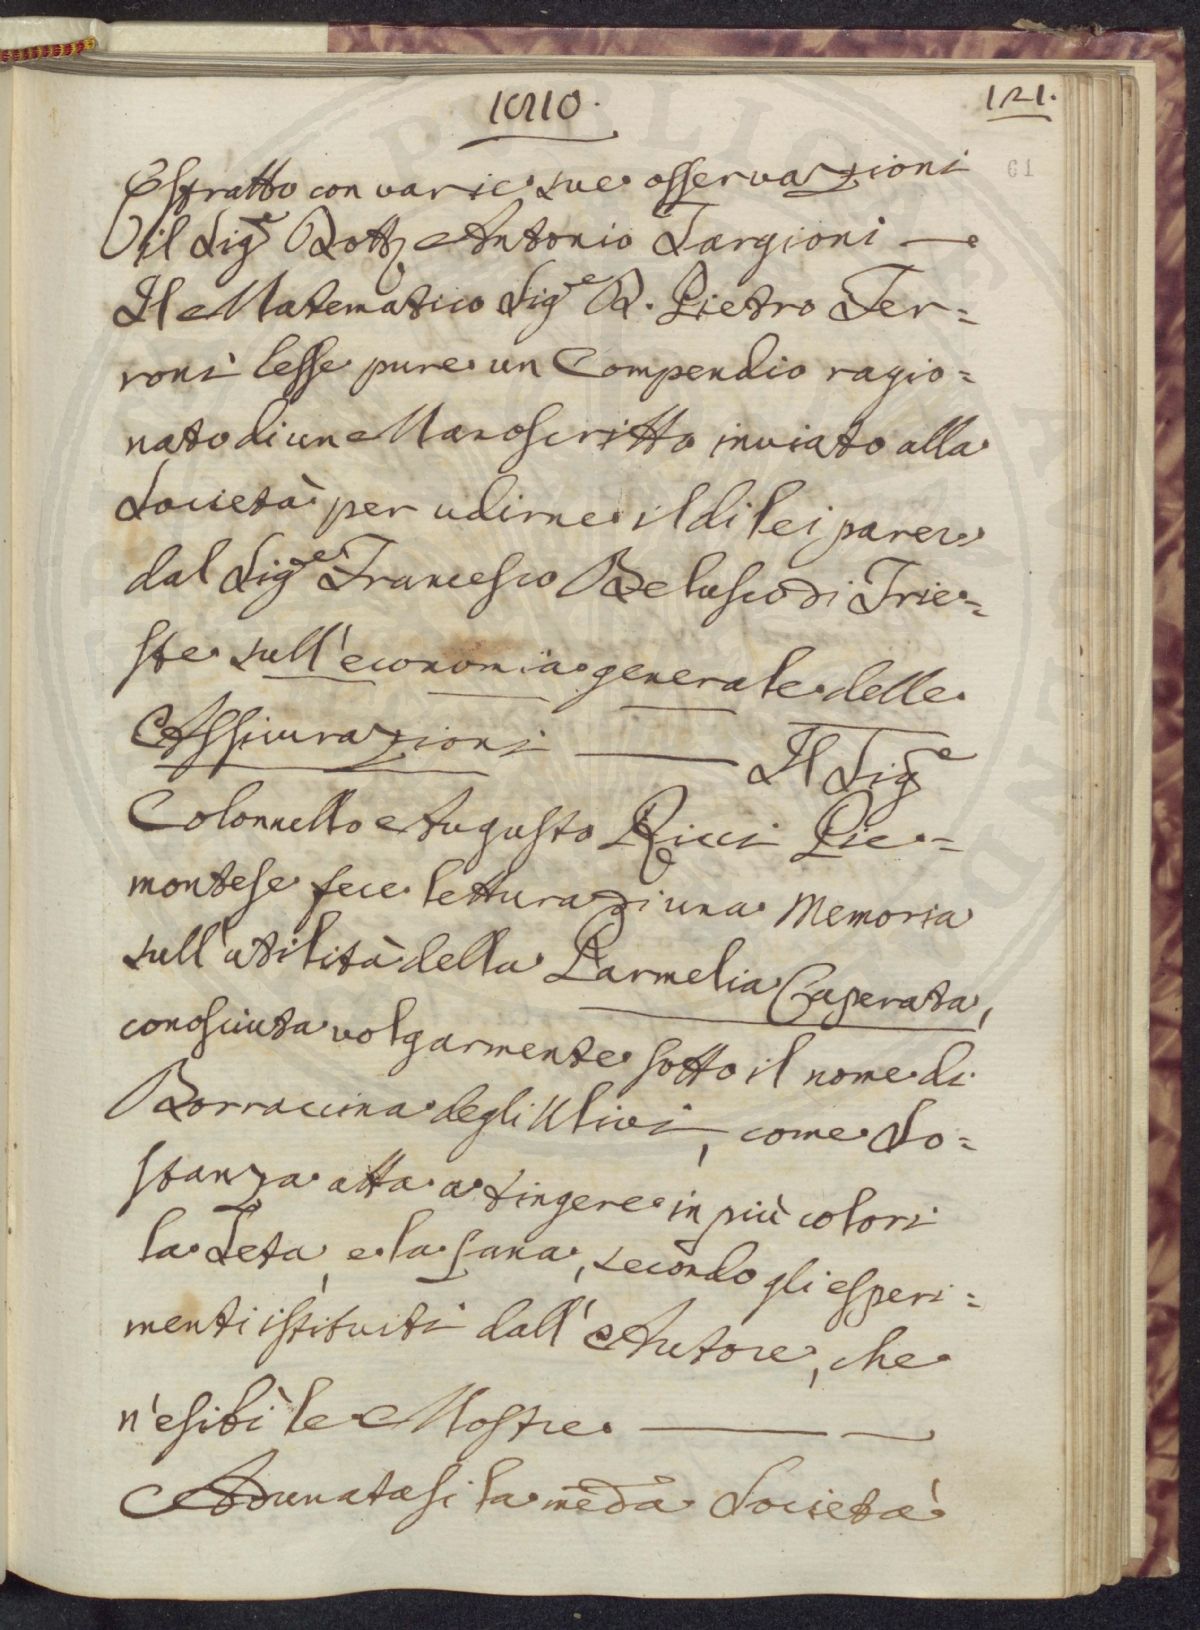 1810.
121.
61
Estratto con varie sue osservazioni
il Sig.e Dott. Antonio Targioni —
Il Matematico Sig.e D. Pietro Fer=
roni lesse pure un Compendio ragio=
nato di un Manoscritto inviato alla
Società per udirne il di lei parere
dal Sig.e Francesco Belusco di Trie=
ste sull'economia generale delle
Assicurazioni — Il Sig.e
Colonnello Augusto Ricci Pie=
montese fece lettura di una Memoria
sull'utilità della Parmelia Caperata,
conosciuta volgarmente sotto il nome di
Borraccina degli Ulivi, come So=
stanza atta a tingere in più colori
la Seta, e la Lana, secondo gli esperi=
menti istituiti dall'Autore, che
n'esibì le Mostre. —
Adunatasi la med.a Società